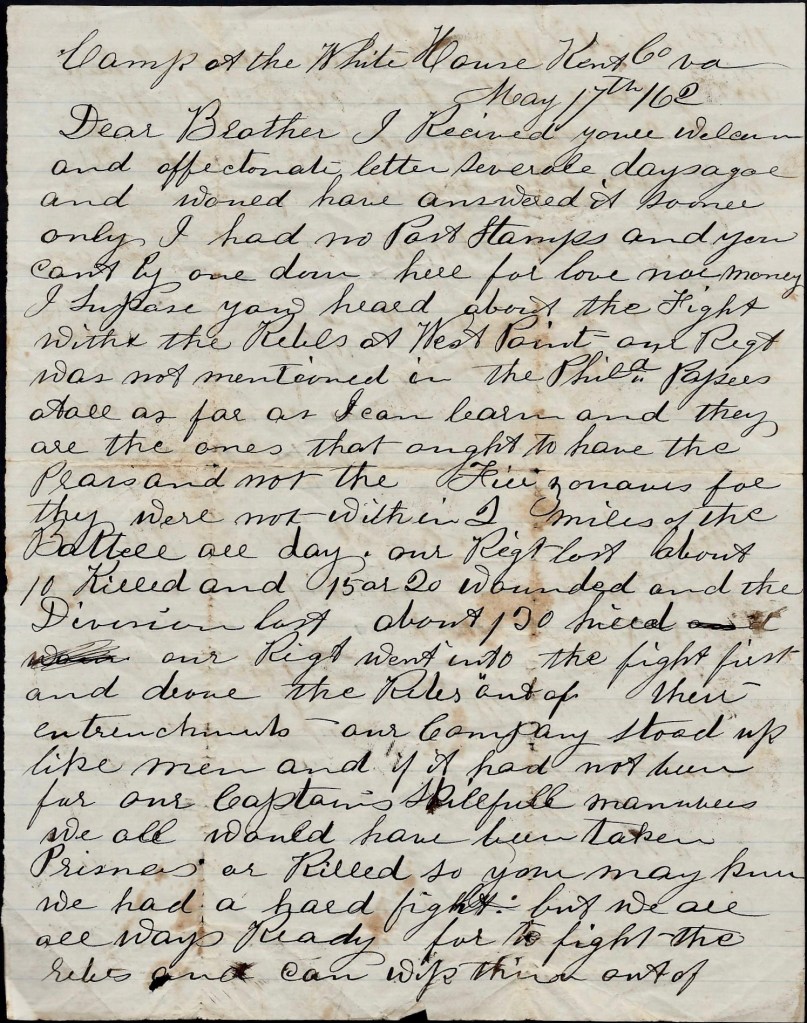 Camp at the White House Kent Co va
May 17th /62
Dear Brother I Recived youre welcum
and affectonate letter severale days agoe
and woued have answered it soonee
only I had no Post Stamps and you
cant by one down here for love nor money
I supose you heard about the Fight
withe the Rebels at West Point our Regt
was not mentioned in the Phila Papees
atall as far as I can learn and they
are the ones that ought to have the
Prais and not the Fire zouaves for
they were not within 2 miles of the
Battell all day. our Regt lost about
10 Killed and 15 or 20 wounded and the
Division lost about 130
our Rigt went into the fight first
and drove the Rebes out of their
entrenchments - our Company stood up
like men and if it had not been
for our Captains skillfull manuvers
we all would have been taken
Prisners or Killed so you may know
we had a hard fight: but we are
all ways Ready for to fight the
rebes and can wip them out of